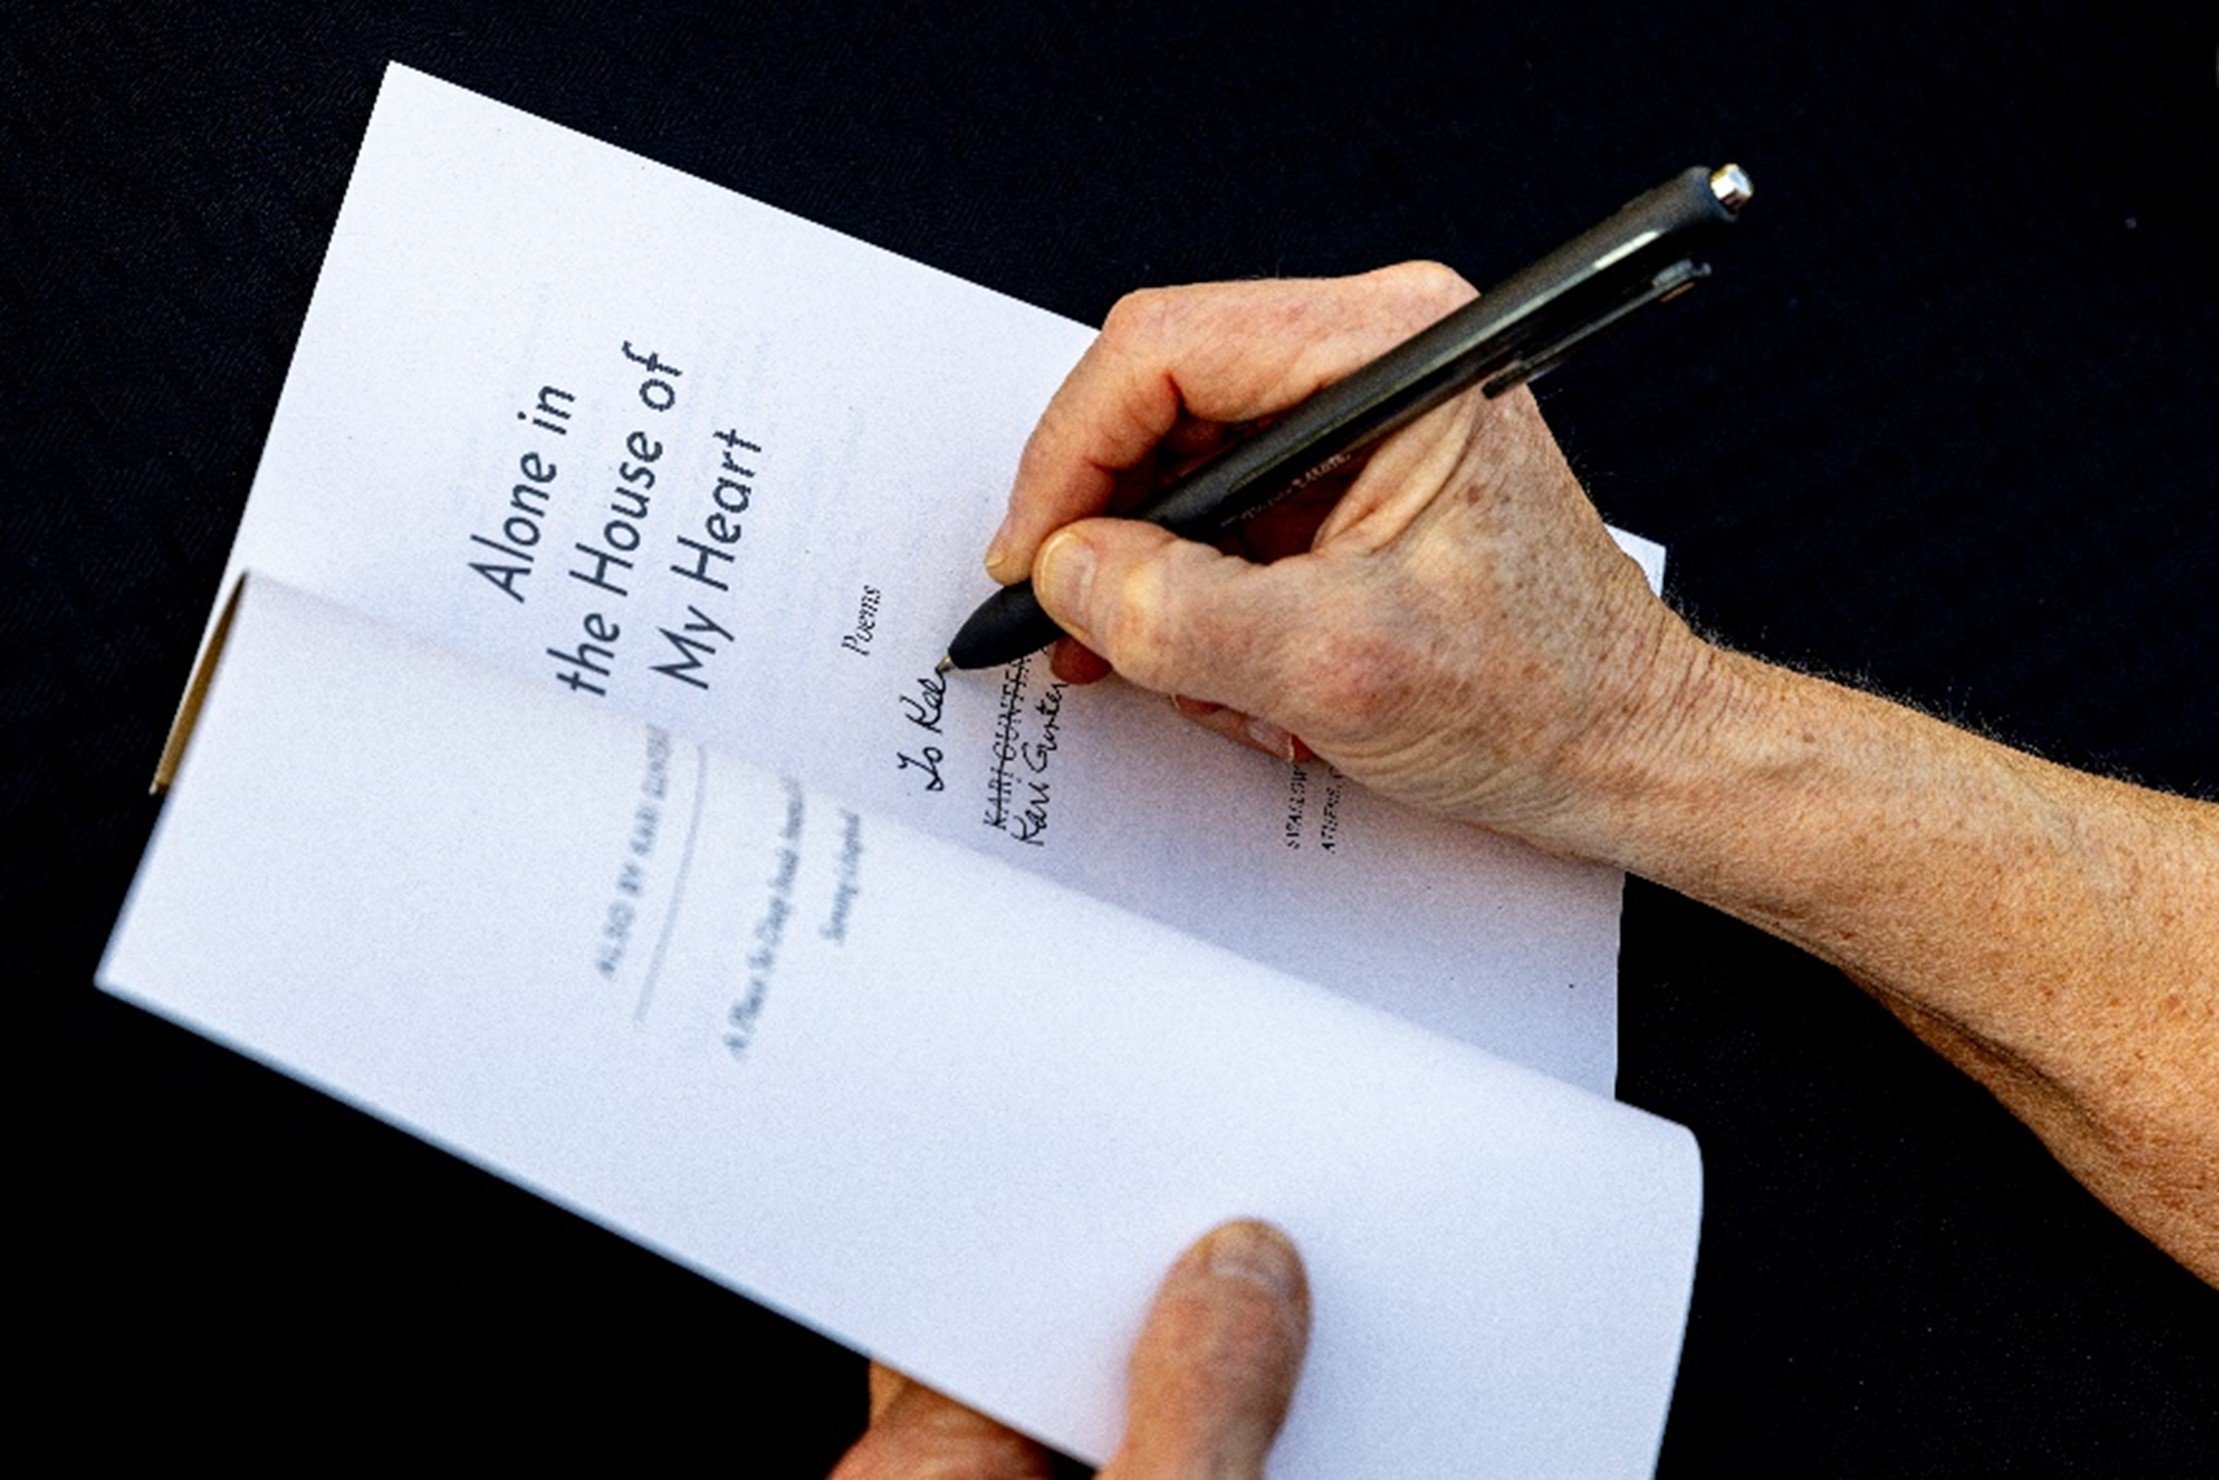 ALSO BY KARI GUNTER
A Place So Deep Inside America
Serving
Alone in
the House of
My Heart
Poems
To Ka
KARI GUNTER
Kari Gunter
SWALLOW
ATHENS,